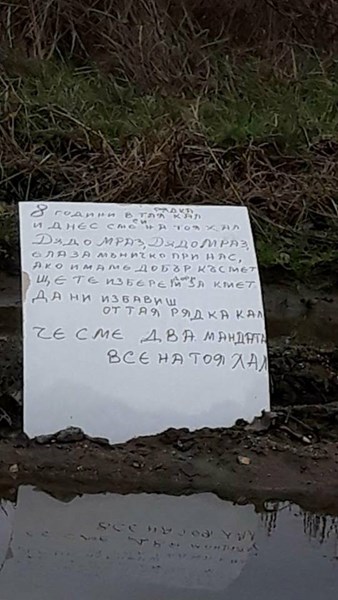 8 ГОДИНИ В ТАЯ РЯДКА КАЛ
И ДНЕС СИ СМЕ НА ТОЯ ХАЛ
ДЯДО МРАЗ, ДЯДО МРАЗ,
ЕЛА ЗА МЪНИЧКО ПРИ НАС,
АКО ИМАМЕ ДОБЪР КЪСМЕТ
ЩЕ ТЕ ИЗБЕРЕМ ЗА КМЕТ
ДА НИ ИЗБАВИШ
ОТ ТАЯ РЯДКА КАЛ
ЧЕ СМЕ ДВА МАНДАТА
ВСЕ НА ТОЯ ХАЛ